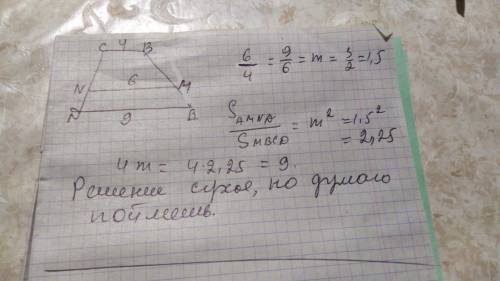 C 4 B
N 6 M
D 9 B
6/4 = 9/6 = m = 3/2 = 1,5
S_AMND / S_MBCD = m² = 1,5²
= 2,25
4m = 4·2,25 = 9.
Решение сухое, но думаю
поймешь.